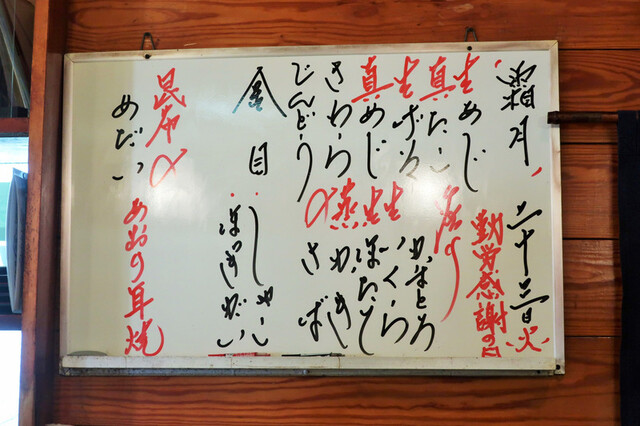 霜月、二十三日火、
勤労感謝の日
生あじ
真たい
真めじ
さわら
じんどう
金目
昆布〆
めだい
かまとろ
生いくら
生ほたて
蒸かき
〆さば
しゃこ
ほっきがい
あおりの耳焼